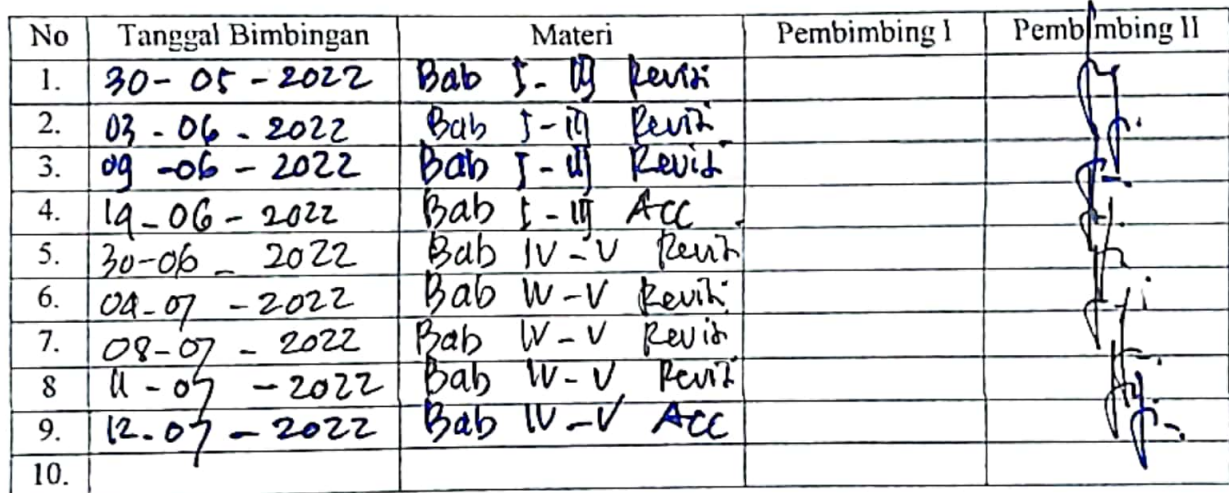 No Tanggal Bimbingan Materi Pembimbing I Pembimbing II
1. 30-05-2022 Bab I-III Revisi
2. 03-06-2022 Bab I-III Revisi
3. 09-06-2022 Bab I-III Revisi
4. 19-06-2022 Bab I-III Acc
5. 30-06-2022 Bab IV-V Revisi
6. 04-07-2022 Bab IV-V Revisi
7. 08-07-2022 Bab IV-V Revisi
8 11-07-2022 Bab IV-V Revisi
9. 12-07-2022 Bab IV-V Acc
10.